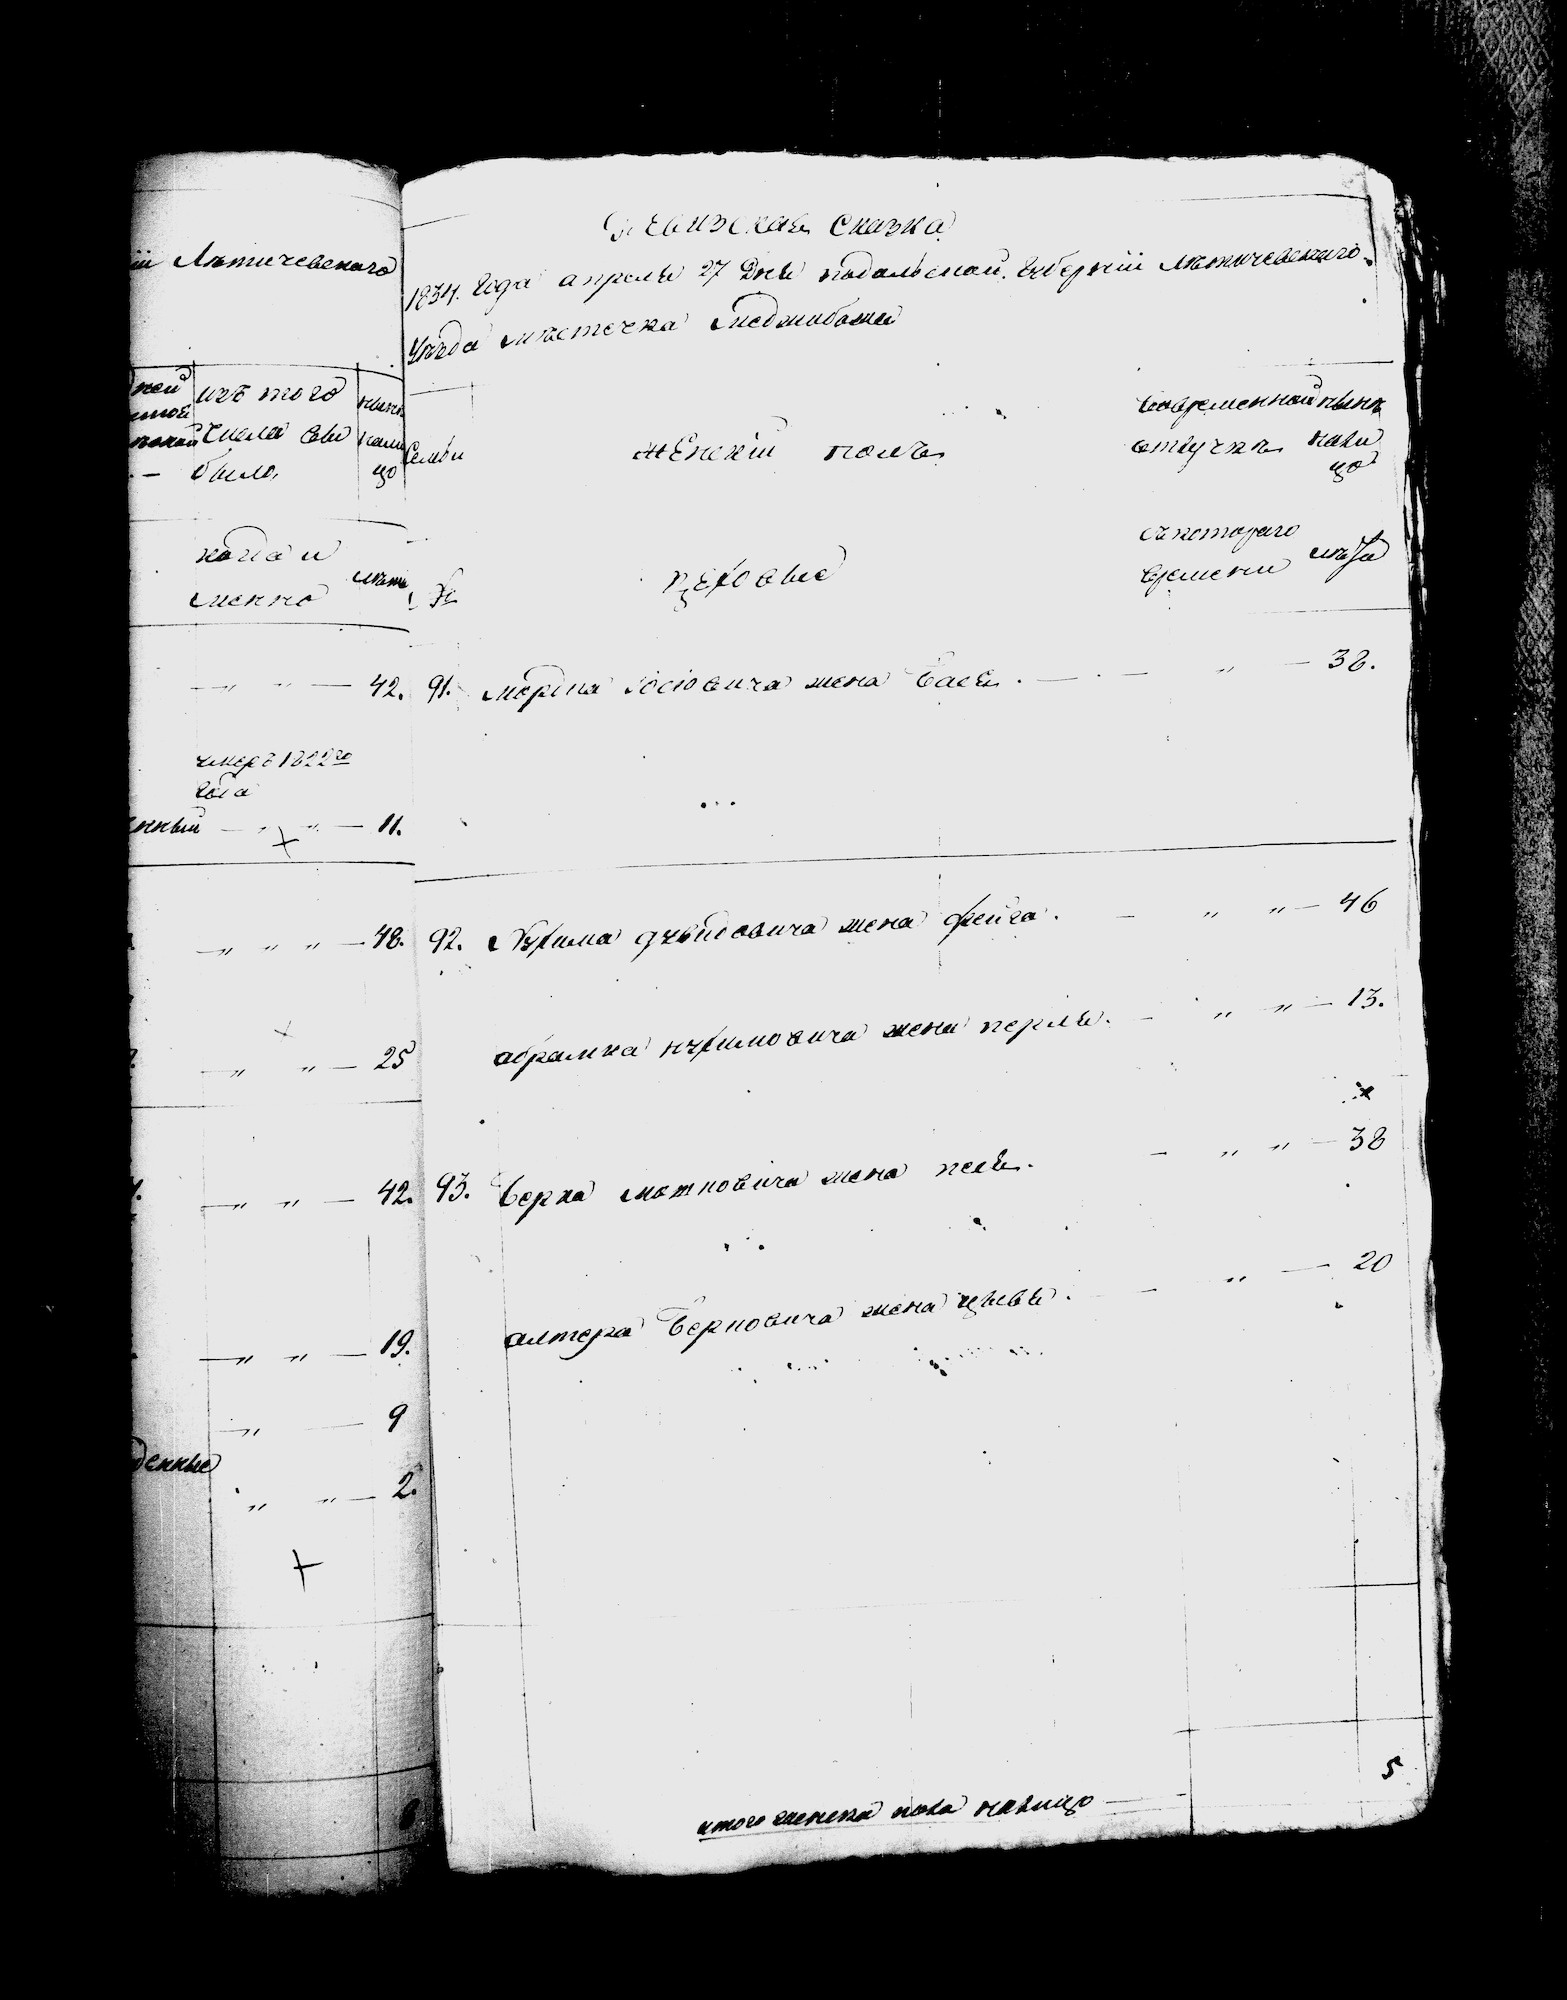 Лѣтичевскаго
изъ того
числа вы
было,
когда и
менно
лѣта
42.
умеръ 1822го
года
нный 11.
48.
25
42.
19.
9
денные
2.
Ревизская Сказка
1834. Года апреля 27 Дня подольской. Губерніи лѣтичевскаго
уѣзда мѣстечка меджибожа
Семьи
женскій полъ
вовременной отлучкѣ
нынѣ нали цо
№
Еврѣи
съкотораго времени
лѣта
91. мортка Іосіовича жена Бася. 38.
92. Нухима Дувидовича жена фейга. 46
абрамка нухимовича жена перля. 13.
93. Берка мотковича жена песя. 38
алтера Берковича жена цивья. 20
итого женска пола налицо 5